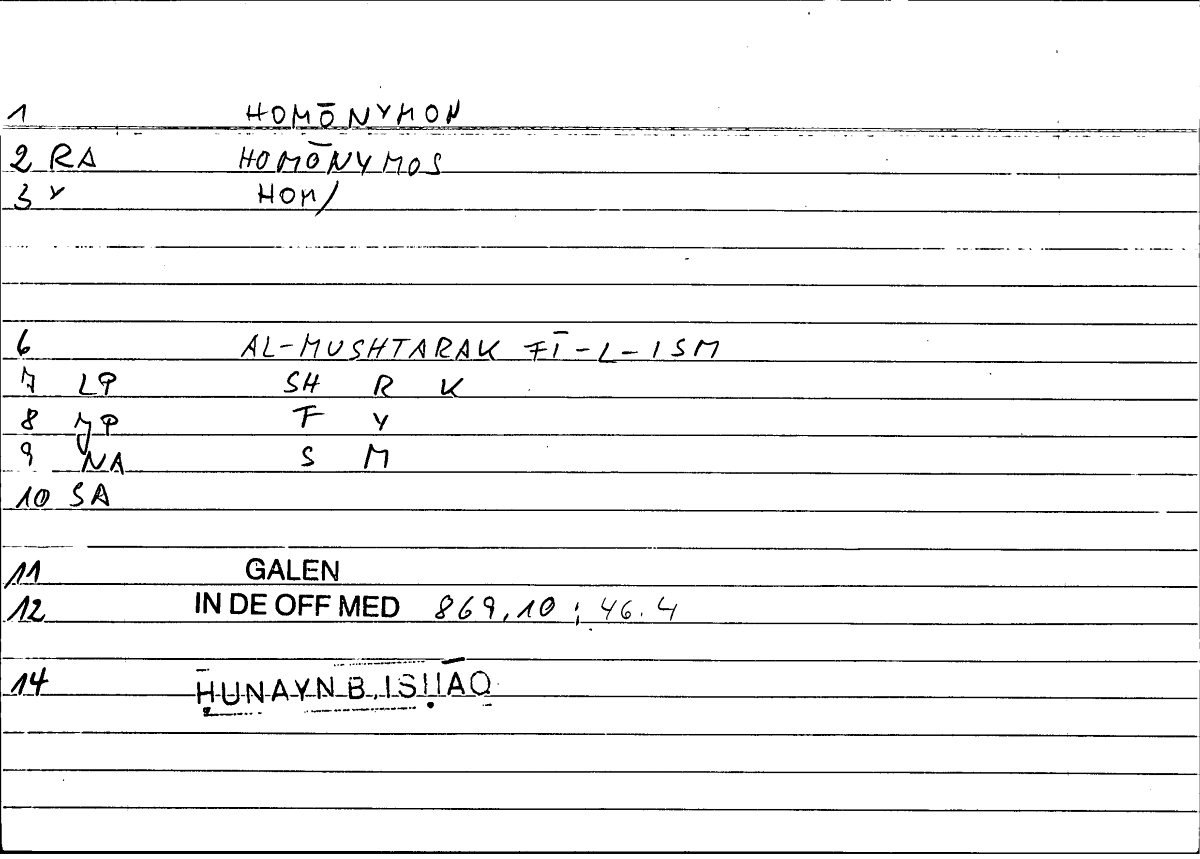 1 HOMŌNYMON
2 RA HOMŌNYMOS
3 Y HOM/
6 AL-MUSHTARAK FĪ-L-ISM
7 LP SH R K
8 JP F Y
9 NA S M
10 SA
11 GALEN
12 IN DE OFF MED 869,10 ; 46.4
14 ḤUNAYN B. ISḤĀQ